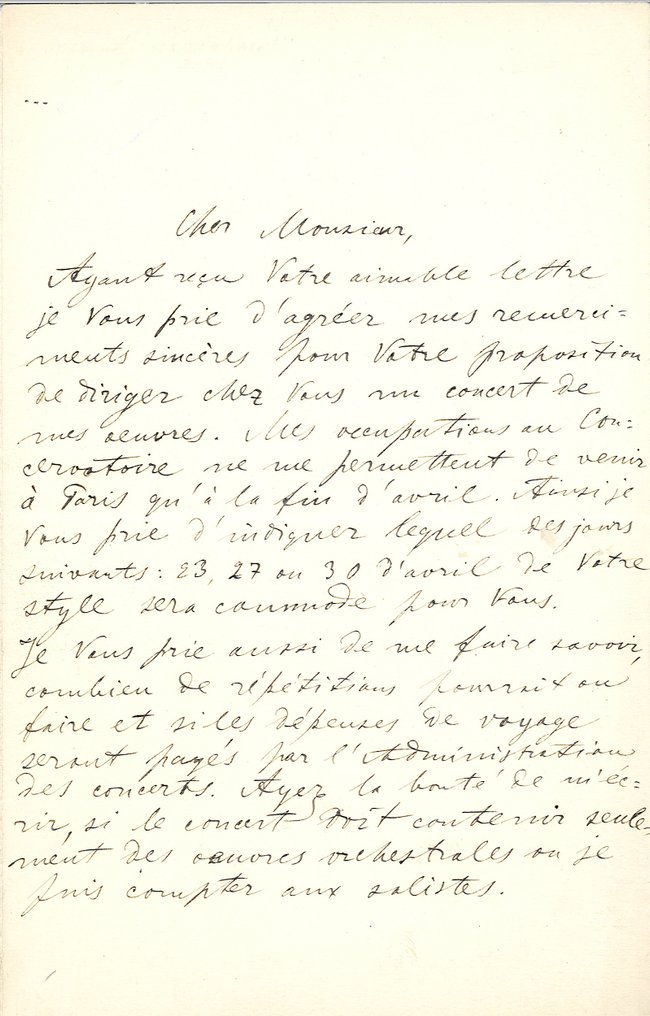 Cher Monsieur,
Ayant reçu Votre aimable lettre
je Vous prie d'agréer mes remerci=
ments sincères pour Votre proposition
de diriger chez Vous un concert de
mes oeuvres. Mes occupations au Con=
cervatoire ne me permettent de venir
à Paris qu'à la fin d'avril. Ainsi je
Vous prie d'indiquer lequel des jours
suivants: 23, 27 ou 30 d'avril de Votre
style sera commode pour Vous.
Je Vous prie aussi de me faire savoir,
combien de répétitions pourrait on
faire et si les dépenses de voyage
seront payés par l'Administration
des concerts. Ayez la bonté de m'éc=
rir, si le concert doit contenir seule=
ment des oeuvres orchestrales ou je
puis compter aux solistes.